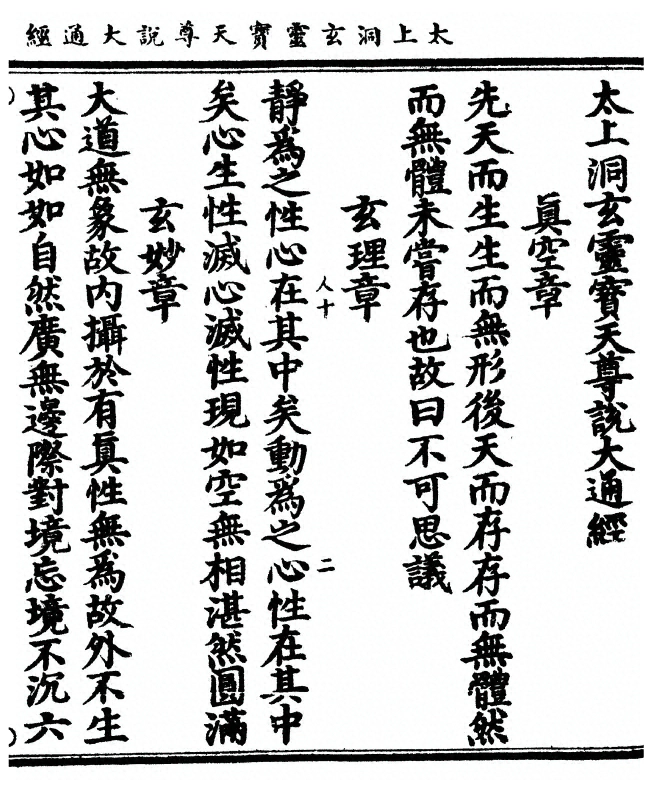 太上洞玄靈寶天尊說大通經
太上洞玄靈寶天尊說大通經
眞空章
先天而生生而無形後天而存存而無體然
而無體未嘗存也故曰不可思議
玄理章
人十
二
靜爲之性心在其中矣動爲之心性在其中
矣心生性滅心滅性現如空無相湛然圓滿
玄妙章
大道無象故內攝於有眞性無爲故外不生
其心如如自然廣無邊際對境忘境不沉六